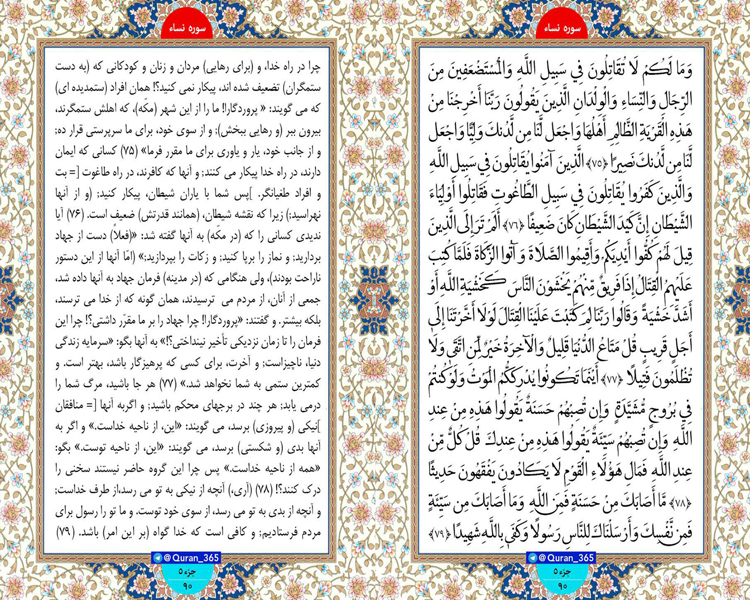 سوره نساء
وَمَا لَكُمْ لَا تُقَاتِلُونَ فِي سَبِيلِ اللَّهِ وَالْمُسْتَضْعَفِينَ مِنَ
الرِّجَالِ وَالنِّسَاءِ وَالْوِلْدَانِ الَّذِينَ يَقُولُونَ رَبَّنَا أَخْرِجْنَا مِنْ
هَٰذِهِ الْقَرْيَةِ الظَّالِمِ أَهْلُهَا وَاجْعَل لَّنَا مِن لَّدُنكَ وَلِيًّا وَاجْعَل
لَّنَا مِن لَّدُنكَ نَصِيرًا ﴿۷۵﴾ الَّذِينَ آمَنُوا يُقَاتِلُونَ فِي سَبِيلِ اللَّهِ
وَالَّذِينَ كَفَرُوا يُقَاتِلُونَ فِي سَبِيلِ الطَّاغُوتِ فَقَاتِلُوا أَوْلِيَاءَ
الشَّيْطَانِ إِنَّ كَيْدَ الشَّيْطَانِ كَانَ ضَعِيفًا ﴿۷۶﴾ أَلَمْ تَرَ إِلَى الَّذِينَ
قِيلَ لَهُمْ كُفُّوا أَيْدِيَكُمْ وَأَقِيمُوا الصَّلَاةَ وَآتُوا الزَّكَاةَ فَلَمَّا كُتِبَ
عَلَيْهِمُ الْقِتَالُ إِذَا فَرِيقٌ مِّنْهُمْ يَخْشَوْنَ النَّاسَ كَخَشْيَةِ اللَّهِ أَوْ
أَشَدَّ خَشْيَةً وَقَالُوا رَبَّنَا لِمَ كَتَبْتَ عَلَيْنَا الْقِتَالَ لَوْلَا أَخَّرْتَنَا إِلَى
أَجَلٍ قَرِيبٍ قُلْ مَتَاعُ الدُّنْيَا قَلِيلٌ وَالْآخِرَةُ خَيْرٌ لِّمَنِ اتَّقَى وَلَا
تُظْلَمُونَ فَتِيلًا ﴿۷۷﴾ أَيْنَمَا تَكُونُوا يُدْرِككُّمُ الْمَوْتُ وَلَوْ كُنتُمْ
فِي بُرُوجٍ مُّشَيَّدَةٍ وَإِن تُصِبْهُمْ حَسَنَةٌ يَقُولُوا هَٰذِهِ مِنْ عِندِ
اللَّهِ وَإِن تُصِبْهُمْ سَيِّئَةٌ يَقُولُوا هَٰذِهِ مِنْ عِندِكَ قُلْ كُلٌّ مِّنْ
عِندِ اللَّهِ فَمَالِ هَٰؤُلَاءِ الْقَوْمِ لَا يَكَادُونَ يَفْقَهُونَ حَدِيثًا
﴿۷۸﴾ مَّا أَصَابَكَ مِنْ حَسَنَةٍ فَمِنَ اللَّهِ وَمَا أَصَابَكَ مِن سَيِّئَةٍ
فَمِن نَّفْسِكَ وَأَرْسَلْنَاكَ لِلنَّاسِ رَسُولًا وَكَفَى بِاللَّهِ شَهِيدًا ﴿۷۹﴾
@Quran_365
جزء ۵
۹۰
سوره نساء
چرا در راه خدا، و (برای رهایی) مردان و زنان و کودکانی که (به دست
ستمگران) تضعیف شده اند، پیکار نمی کنید؟! همان افراد (ستمدیده ای)
که می گویند: «پروردگارا! ما را از این شهر (مکّه)، که اهلش ستمگرند،
بیرون ببر (و رهایی ببخش)؛ و از سوی خود، برای ما سرپرستی قرار ده؛
و از جانب خود، یار و یاوری برای ما مقرر فرما» (۷۵) کسانی که ایمان
دارند، در راه خدا پیکار می کنند؛ و آنها که کافرند، در راه طاغوت [= بت
و افراد طغیانگر. ]پس شما با یاران شیطان، پیکار کنید؛ (و از آنها
نهراسید؛) زیرا که نقشه شیطان، (همانند قدرتش) ضعیف است. (۷۶) آیا
ندیدی کسانی را که (در مکّه) به آنها گفته شد: «(فعلاً) دست از جهاد
بردارید؛ و نماز را برپا کنید؛ و زکات را بپردازید؛» (امّا آنها از این دستور
ناراحت بودند)، ولی هنگامی که (در مدینه) فرمان جهاد به آنها داده شد،
جمعی از آنان، از مردم می ترسیدند، همان گونه که از خدا می ترسند،
بلکه بیشتر. و گفتند: «پروردگارا! چرا جهاد را بر ما مقرّر داشتی؟! چرا این
فرمان را تا زمان نزدیکی تأخیر نینداختی؟!» به آنها بگو: «سرمایه زندگی
دنیا، ناچیزاست؛ و آخرت، برای کسی که پرهیزگار باشد، بهتر است. و
کمترین ستمی به شما نخواهد شد.» (۷۷) هر جا باشید، مرگ شما را
درمی یابد؛ هر چند در برجهای محکم باشید؛ و اگربه آنها [= منافقان
]نیکی (و پیروزی) برسد، می گویند: «این، از ناحیه خداست.» و اگر به
آنها بدی (و شکستی) برسد، می گویند: «این، از ناحیه توست.» بگو:
«همه از ناحیه خداست.» پس چرا این گروه حاضر نیستند سخنی را
درک کنند؟! (۷۸) (آری،) آنچه از نیکی به تو می رسد،از طرف خداست؛
و آنچه از بدی به تو می رسد، از سوی خود توست. و ما تو را رسول برای
مردم فرستادیم؛ و کافی است که خدا گواه (بر این امر) باشد. (۷۹)
@Quran_365
جزء ۵
۹۰